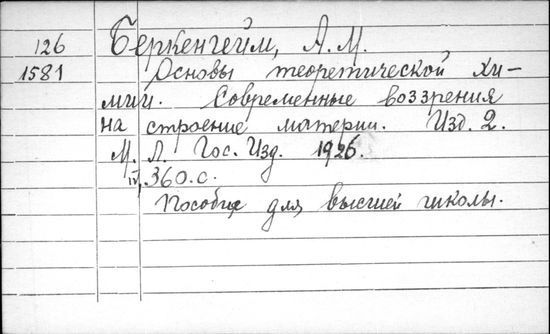 126 Беркенгейм, А. М.
1581 Основы теоретической хи-
мии. Современные воззрения
на строение материи. Изд. 2.
М. Л. Гос. Изд. 1926.
IV, 360 с.
Пособие для высшей школы.